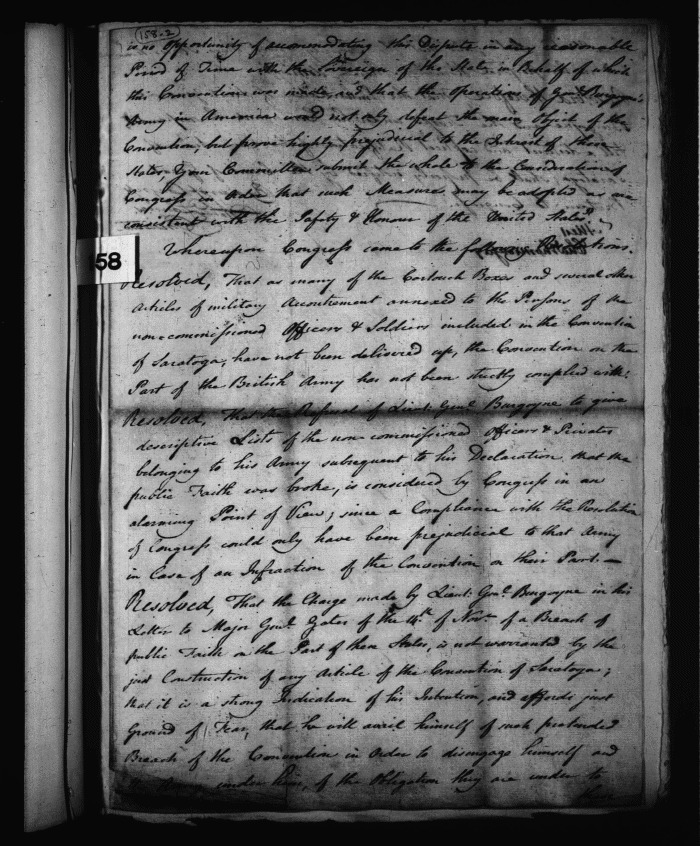 (158-2)
is no Opportunity of accommodating this Dispute in any reasonable
Period of Time with the Sovereign of the State in Behalf of which
this Convention was made, and that the Operations of Genl. Burgoyne's
Army in America would not only defeat the main Object of the
Convention, but prove highly prejudicial to the Interest of these
States, Your Committee submit the whole to the Consideration of
Congress in order that such Measures may be adopted as are
consistent with the Safety & Honour of the United States."
Whereupon Congress came to the
58
Resolved, That as many of the Cartouch Boxes and several other
Articles of military Accoutrement annexed to the Persons of the
non-commissioned Officers & Soldiers included in the Convention
of Saratoga, have not been delivered up, the Convention on the
Part of the British Army has not been strictly complied with:
Resolved, That the Refusal of Lieut: Genl. Burgoyne to give
descriptive Lists of the non-commissioned Officers & Privates
belonging to his Army subsequent to his Declaration that the
public Faith was broke, is considered by Congress in an
alarming Point of View; since a Compliance with the Resolution
of Congress could only have been prejudicial to that Army
in Case of an Infraction of the Convention on their Part.—
Resolved, That the Charge made by Lieut. Genl. Burgoyne in his
Letter to Major Genl. Gates of the 14th of Novr. of a Breach of
public Faith on the Part of these States, is not warranted by the
just Construction of any Article of the Convention of Saratoga;
that it is a strong Indication of his Intention, and affords just
Ground of Fear, that he will avail himself of such pretended
Breach of the Convention in Order to disengage himself and
the Army under him, of the Obligation they are under to